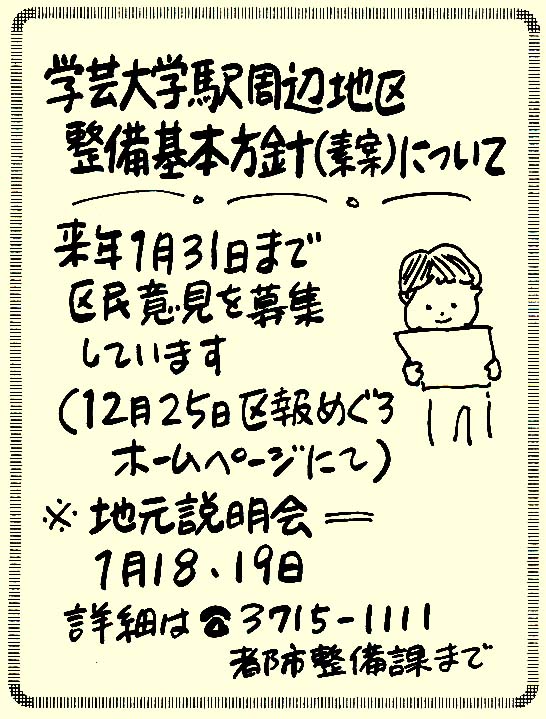 学芸大学駅周辺地区
整備基本方針(素案)について
来年1月31日まで
区民意見を募集
しています
(12月25日区報めぐろ
ホームページにて)
※地元説明会=
1月18、19日
詳細は☎3715-1111
都市整備課まで